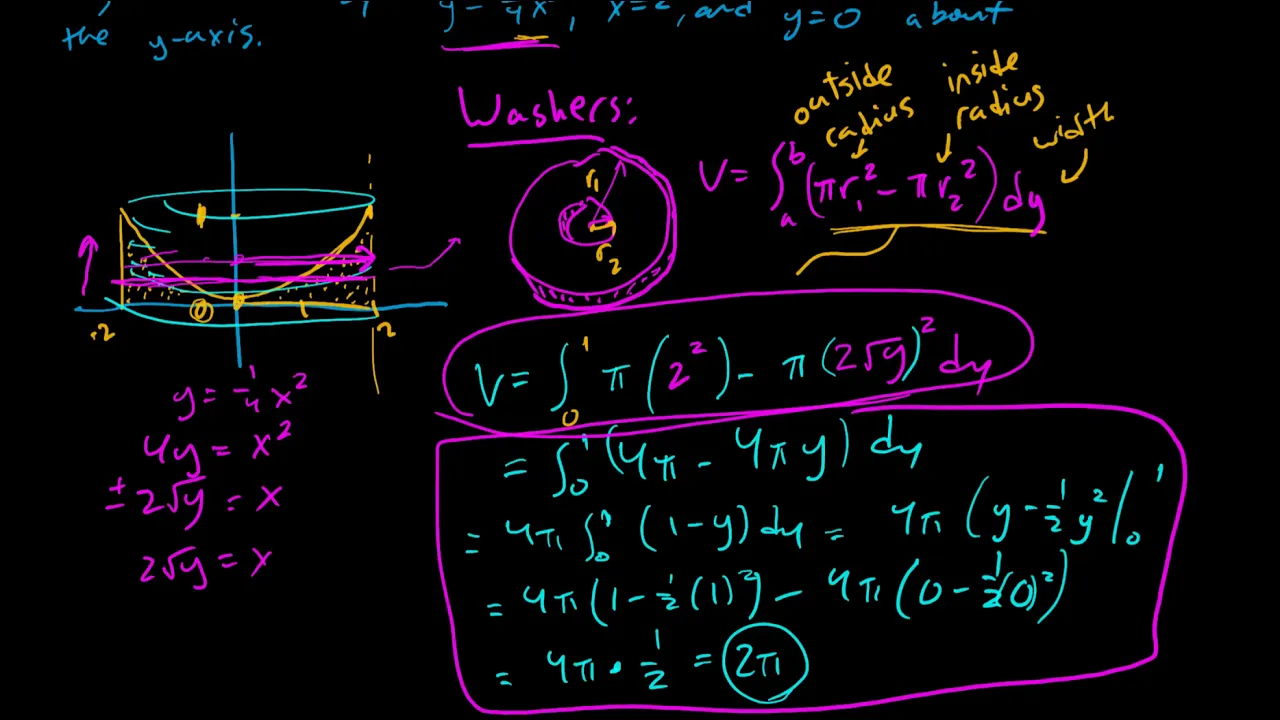 y = 1/4 x², x=2, and y=0 about
the y-axis.
Washers:
outside radius
inside radius
width
V = ∫_a^b (πr₁² - πr₂²) dy
r₁
r₂
0
1
2
-2
y = 1/4 x²
4y = x²
± 2√y = x
2√y = x
V = ∫_0^1 π(2²) - π(2√y)² dy
= ∫_0^1 (4π - 4πy) dy
= 4π ∫_0^1 (1-y) dy = 4π (y - 1/2 y² |_0^1
= 4π(1 - 1/2 (1)²) - 4π(0 - 1/2 (0)²)
= 4π · 1/2 = 2π